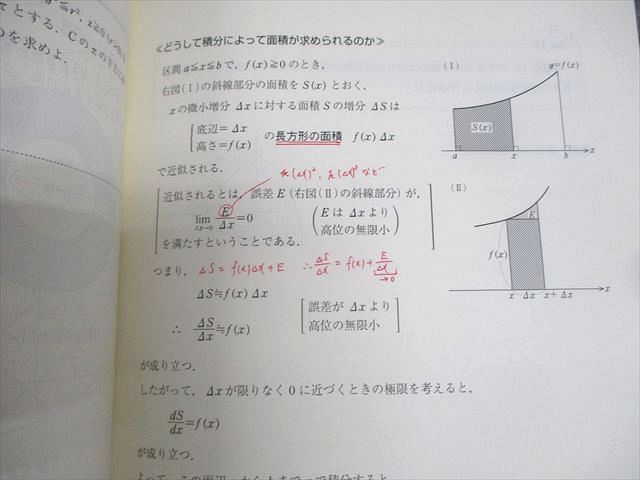 とする. Cの
を求めよ.
≪どうして積分によって面積が求められるのか≫
区間 a≦x≦b で, f(x)≧0 のとき,
右図(Ⅰ)の斜線部分の面積を S(x) とおく.
x の微小増分 Δx に対する面積 S の増分 ΔS は
底辺=Δx
高さ=f(x)
の長方形の面積 f(x)Δx
で近似される.
近似されるとは, 誤差 E (右図(Ⅱ)の斜線部分) が,
lim Δx→0 E/Δx=0
(E は Δx より
高位の無限小)
を満たすということである.
つまり, ΔS = f(x)Δx+E ∴ ΔS/Δx = f(x)+ E/Δx →0
ΔS≒f(x)Δx
∴ ΔS/Δx≒f(x)
[誤差が Δx より
高位の無限小]
が成り立つ.
したがって, Δx が限りなく 0 に近づくときの極限を考えると,
dS/dx=f(x)
が成り立つ.
(Ⅰ)
y=f(x)
S(x)
a x b x
(Ⅱ)
E
f(x)
x Δx x+Δx x